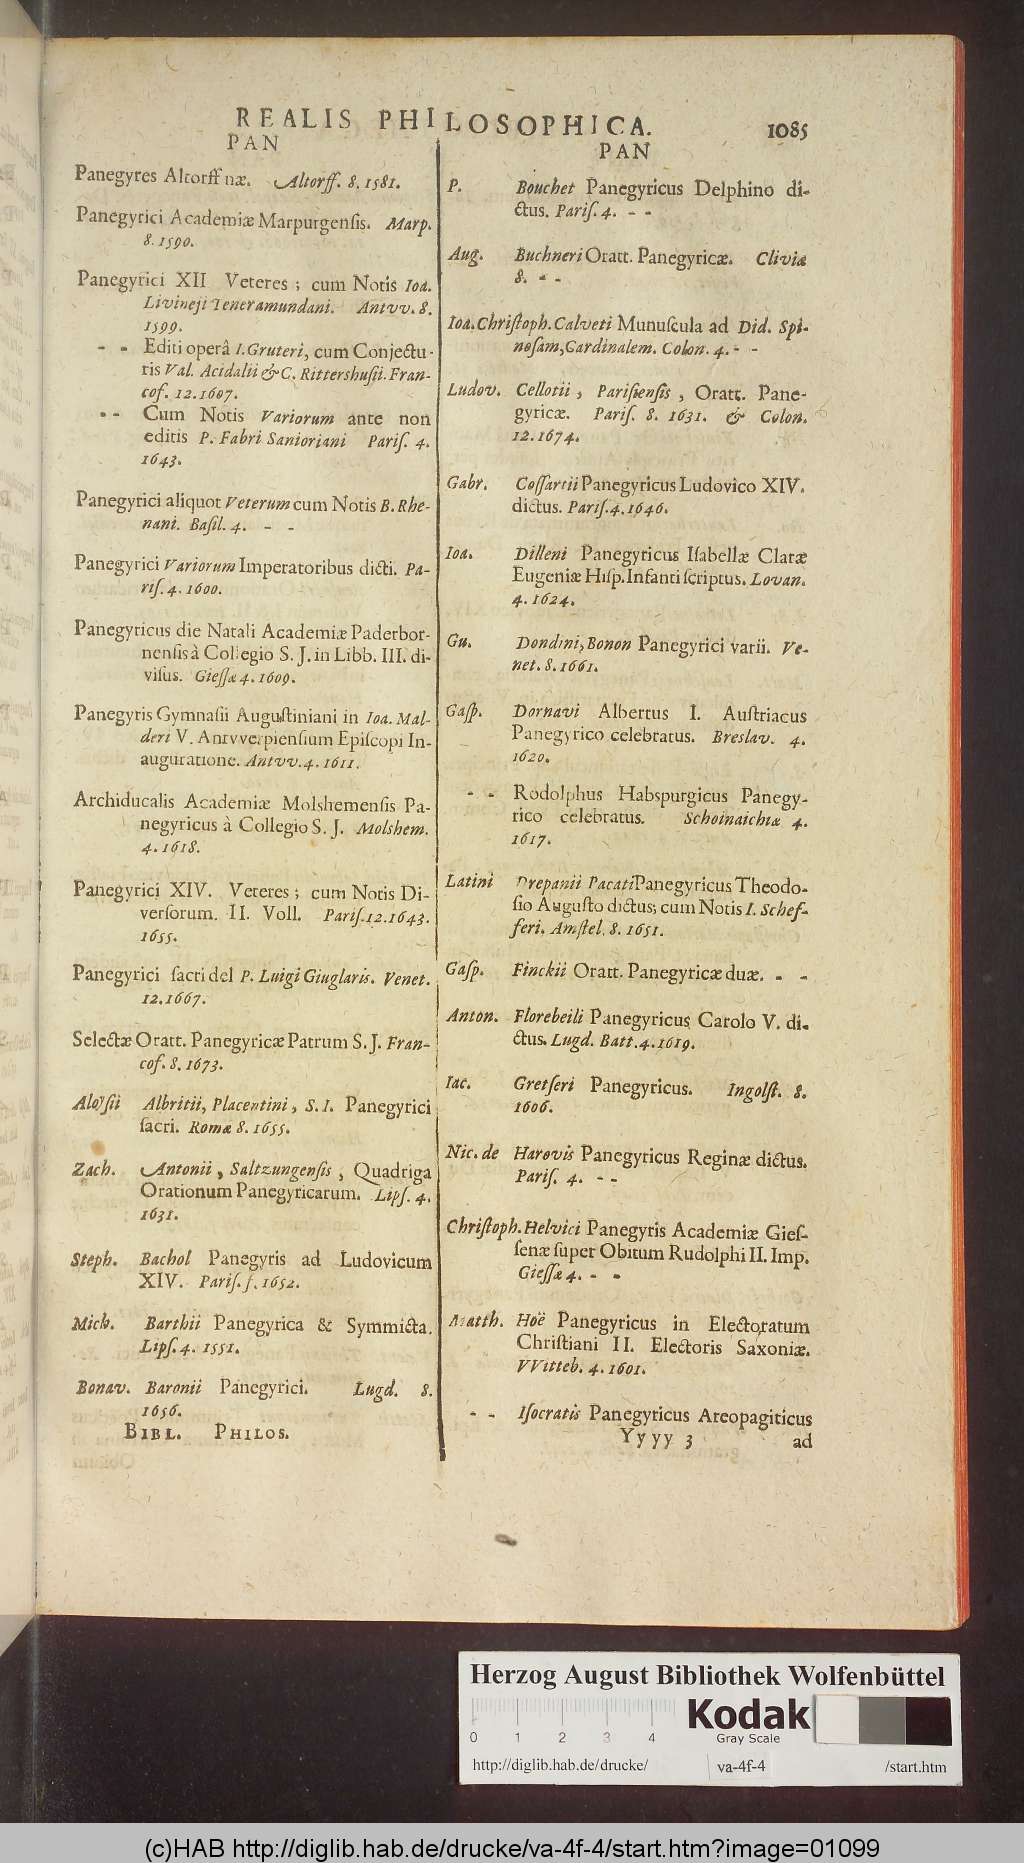 REALIS PHILOSOPHICA. 1085
PAN
Panegyres Altorffinæ. Altorff. 8. 1581.
Panegyrici Academiæ Marpurgensis. Marp.
8. 1590.
Panegyrici XII Veteres; cum Notis Ioa.
Livineji Teneramundani. Antvv. 8.
1599.
- - Editi operâ I. Gruteri, cum Conjectu-
ris Val. Acidalii & C. Rittershusii. Fran-
cof. 12. 1607.
- - Cum Notis Variorum ante non
editis P. Fabri Sanioriani Paris. 4.
1643.
Panegyrici aliquot Veterum cum Notis B. Rhe-
nani. Basil. 4. - -
Panegyrici Variorum Imperatoribus dicti. Pa-
ris. 4. 1600.
Panegyricus die Natali Academiæ Paderbor-
nensis à Collegio S. J. in Libb. III. di-
visus. Giessæ 4. 1609.
Panegyris Gymnasii Augustiniani in Ioa. Mal-
deri V. Antvverpiensium Episcopi In-
auguratione. Antvv. 4. 1611.
Archiducalis Academiæ Molshemensis Pa-
negyricus à Collegio S. J. Molshem.
4. 1618.
Panegyrici XIV. Veteres; cum Notis Di-
versorum. II. Voll. Paris. 12. 1643.
1655.
Panegyrici sacri del P. Luigi Giuglaris. Venet.
12. 1667.
Selectæ Oratt. Panegyricæ Patrum S. J. Fran-
cof. 8. 1673.
Aloysii Albritii, Placentini, S. I. Panegyrici
sacri. Romæ 8. 1655.
Zach. Antonii, Saltzungensis, Quadriga
Orationum Panegyricarum. Lips. 4.
1631.
Steph. Bachol Panegyris ad Ludovicum
XIV. Paris. f. 1652.
Mich. Barthii Panegyrica & Symmicta.
Lips. 4. 1551.
Bonav. Baronii Panegyrici. Lugd. 8.
1656.
BIBL. PHILOS.
PAN
P. Bouchet Panegyricus Delphino di-
ctus. Paris. 4. - -
Aug. Buchneri Oratt. Panegyricæ. Cliviæ
8. - -
Ioa. Christoph. Calveti Munuscula ad Did. Spi-
nosam, Cardinalem. Colon. 4. - -
Ludov. Cellotii, Parisiensis, Oratt. Pane-
gyricæ. Paris. 8. 1631. & Colon.
12. 1674.
Gabr. Cossartii Panegyricus Ludovico XIV.
dictus. Paris. 4. 1646.
Ioa. Dilleni Panegyricus Isabellæ Claræ
Eugeniæ Hisp. Infanti scriptus. Lovan.
4. 1624.
Gu. Dondini, Bonon Panegyrici varii. Ve-
net. 8. 1661.
Gasp. Dornavi Albertus I. Austriacus
Panegyrico celebratus. Breslav. 4.
1620.
- - Rodolphus Habspurgicus Panegy-
rico celebratus. Schoinaichiæ 4.
1617.
Latini Drepanii Pacati Panegyricus Theodo-
sio Augusto dictus; cum Notis I. Schef-
feri. Amstel. 8. 1651.
Gasp. Finckii Oratt. Panegyricæ duæ. - -
Anton. Florebelli Panegyricus Carolo V. di-
ctus. Lugd. Batt. 4. 1619.
Iac. Gretseri Panegyricus. Ingolst. 8.
1606.
Nic. de Harovis Panegyricus Reginæ dictus.
Paris. 4. - -
Christoph. Helvici Panegyris Academiæ Gies-
senæ super Obitum Rudolphi II. Imp.
Giessæ 4. - -
Matth. Hoë Panegyricus in Electoratum
Christiani II. Electoris Saxoniæ.
VVitteb. 4. 1601.
- - Isocratis Panegyricus Areopagiticus
Yyyy 3 ad
Herzog August Bibliothek Wolfenbüttel
0 1 2 3 4
Kodak
Gray Scale
http://diglib.hab.de/drucke/ va-4f-4 /start.htm
(c)HAB http://diglib.hab.de/drucke/va-4f-4/start.htm?image=01099